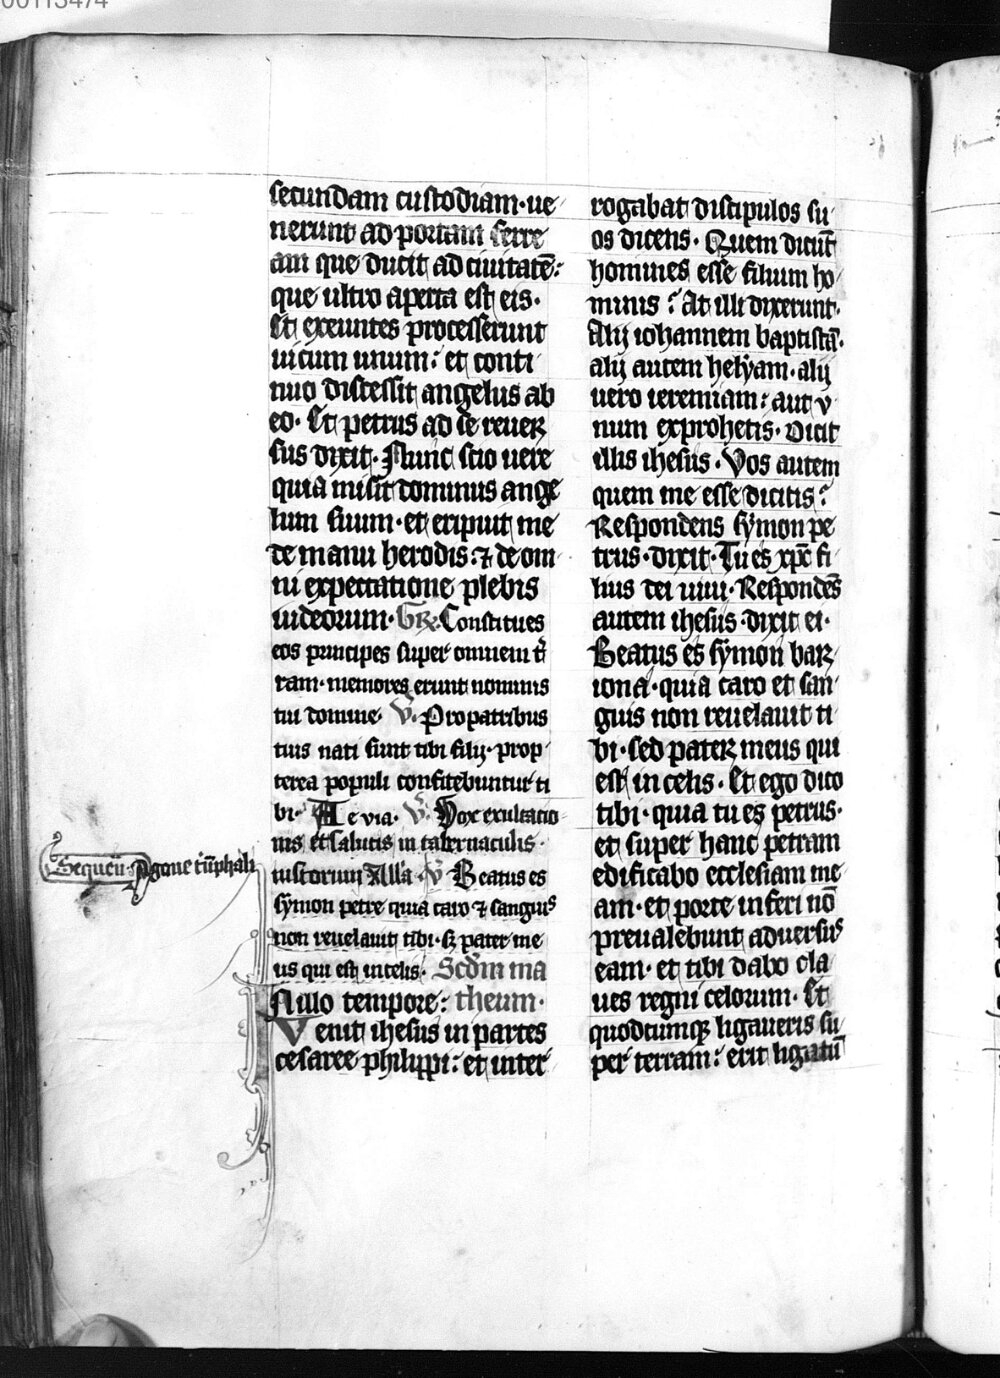 00113474
secundam custodiam·ue
nerunt ad portam ferre
am que ducit ad ciuitatē:
que ultro aperta est eis·
Et exeuntes processerunt
uicum unum: et conti
nuo discessit angelus ab
eo· Et petrus ad se reuer
sus dixit· Nunc scio uere
quia misit dominus ange
lum suum·et eripuit me
de manu herodis:⁊ de om
ni expectatione plebis
iudeorum· GR· Constitues
eos principes super omnem t̄
ram· memores erunt nominis
tui domine· V· Pro patribus
tuis nati sunt tibi filij·prop
terea populi confitebuntur ti
bi· Aeuia· V· Vox exultacio
nis et salutis in tabernaculis·
Sequen̄· Agone t̄ūphali
iustorum Alla· V· Beatus es
symon petre quia caro ⁊ sanguis
non reuelauit tibi·s; pater me
us qui est in celis· Scd̄m ma
In illo tempore: theum·
Venit ihesus in partes
cesaree philippi: et inter
rogabat discipulos su
os dicens· Quem dicūt
homines esse filium ho
minis? At illi dixerunt·
Alij iohannem baptistā·
alij autem helyam·alij
uero ieremiam: aut v
num ex prophetis· Dicit
illis ihesus· Vos autem
quem me esse dicitis?
Respondens symon pe
trus·dixit· Tu es xp̄c fi
lius dei uiui· Respondēs
autem ihesus·dixit ei·
Beatus es symon bar
iona·quia caro et san
guis non reuelauit ti
bi·sed pater meus qui
est in celis· Et ego dico
tibi·quia tu es petrus·
et super hanc petram
edificabo ecclesiam me
am·et porte inferi nō
preualebunt aduersus
eam· et tibi dabo cla
ues regni celorum· Et
quodcumqꝫ ligaueris su
per terram: erit ligatū